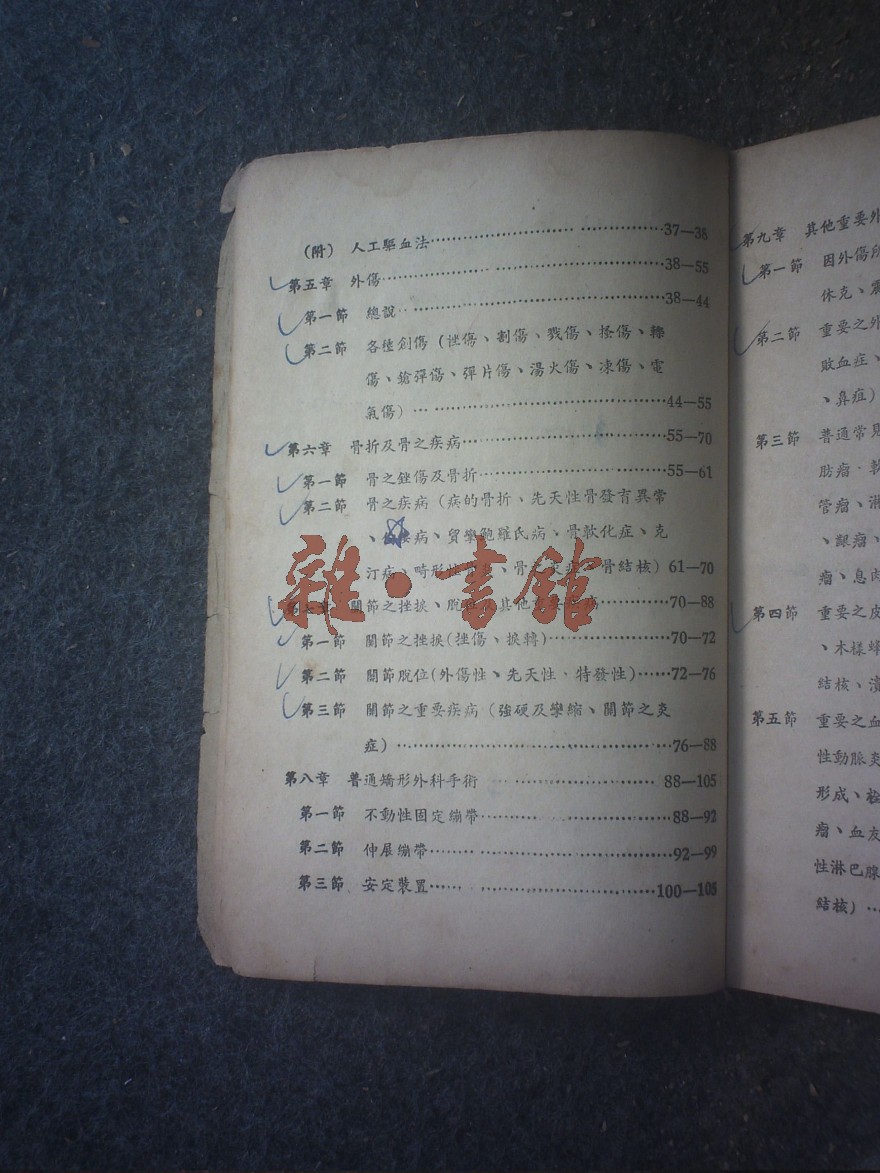 (附) 人工驅血法……37—38
第五章 外傷……38—55
第一節 總說……38—44
第二節 各種創傷(挫傷、割傷、戮傷、搔傷、轢
傷、鎗彈傷、彈片傷、湯火傷、凍傷、電
氣傷)……44—55
第六章 骨折及骨之疾病……55—70
第一節 骨之銼傷及骨折……55—61
第二節 骨之疾病(病的骨折、先天性骨發育異常
病、貿攣皰羅氏病、骨軟化症、克
汀病、畸形性 骨結核)61—70
第七章 關節之挫捩、脫 其他 疾病……70—88
第一節 關節之挫捩(挫傷、捩轉)……70—72
第二節 關節脫位(外傷性、先天性、特發性)……72—76
第三節 關節之重要疾病(強硬及攣縮、關節之炎
症)……76—88
第八章 普通矯形外科手術……88—105
第一節 不動性固定繃帶……88—92
第二節 伸展繃帶……92—99
第三節 安定裝置……100—108
雜·書館
第九章 其他重要外
第一節 因外傷所
休克、震
第二節 重要之外
敗血症、
、鼻疽)
第三節 普通常見
肪瘤·軟
管瘤、淋
、齦瘤、
瘤、息肉
第四節 重要之皮
、木樣蜂
結核、潰
第五節 重要之血
性動脈炎
形成、栓
瘤、血友
性淋巴腺
結核)…